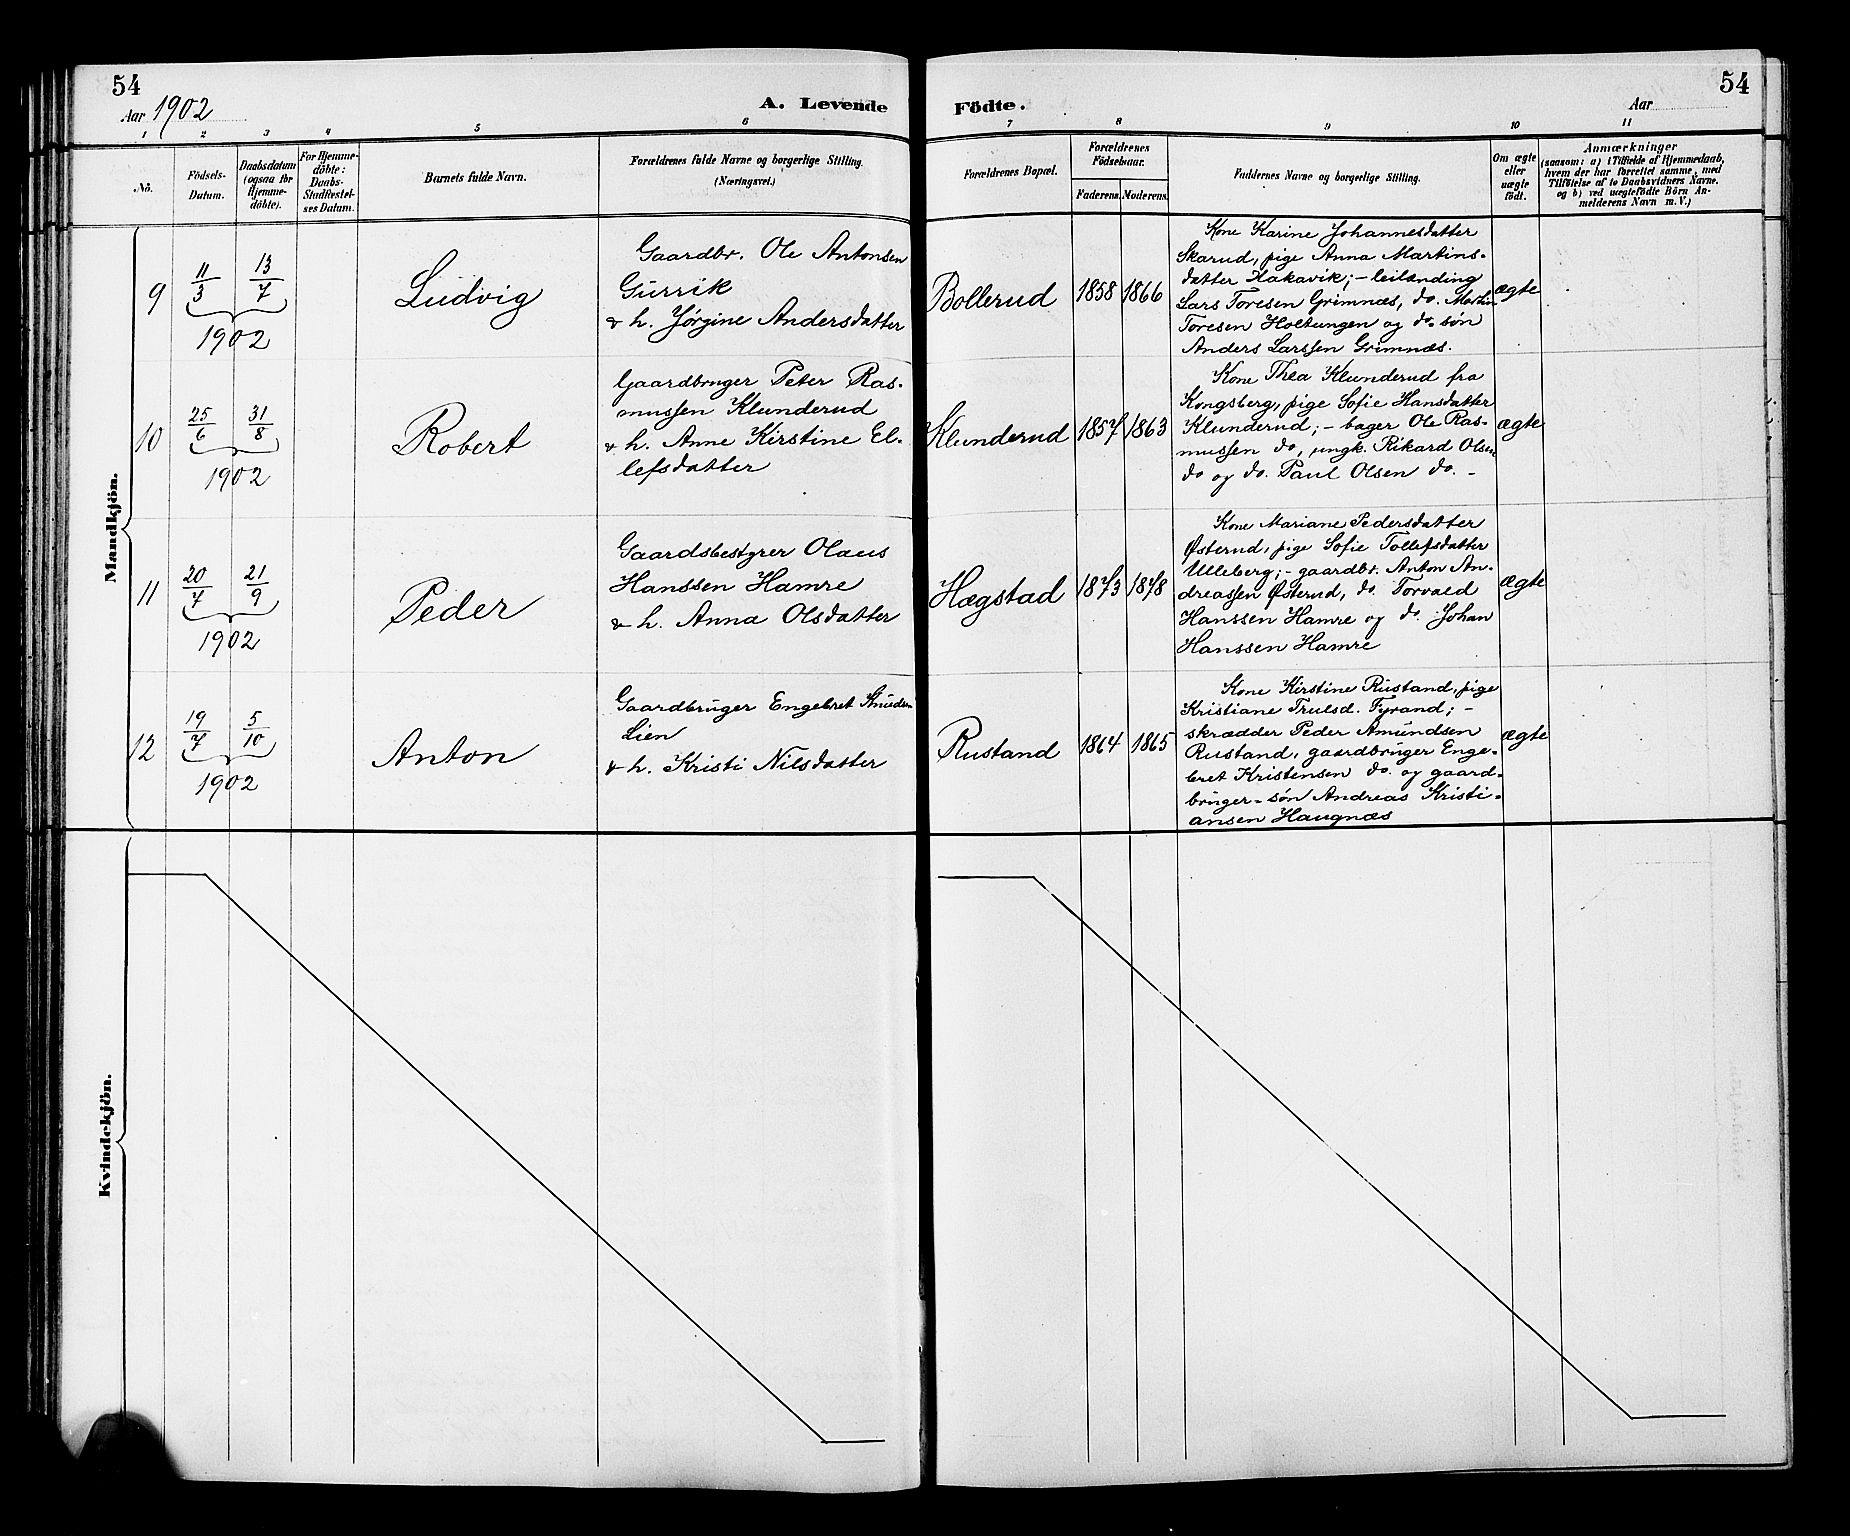 54
54
Aar 1902
A. Levende
Födte.
Aar
1
2
3
4
5
6
7
8
9
10
11
No.
Födsels-
Datum.
Daabsdatum
(ogsaa för
Hjemme-
döbte).
For Hjemme-
döbte:
Daabs-
Stadfæstel-
ses Datum.
Barnets fulde Navn.
Forældrenes fulde Navne og borgerlige Stilling.
(Næringsvei.)
Forældrenes Bopæl.
Forældrenes
Födselsaar.
Faderens.
Moderens.
Faddernes Navne og borgerlige Stilling.
Om ægte
eller
uægte
födt.
Anmærkninger
(saasom: a) i Tilfælde af Hjemmedaab,
hvem der har forrettet samme, med
Tilföielse af to Daabsvidners Navne.
og b) ved uægtefödte Börn An-
melderens Navn m. V.)
Mandkjön.
9
11/3
13/7
1902
Ludvig
Gaardbr. Ole Antonsen
Gurrik
& h. Jørgine Andersdatter
Bollerud
1858
1866
Kone Karine Johannesdatter
Skarud, pige Anna Martins-
datter Hakavik; - leilænding
Lars Toresen Grimnæs, do. Martin
Toresen Holtungen og do. søn
Anders Larssen Grimnæs.
ægte
10
25/6
31/8
1902
Robert
Gaardbruger Peter Ras-
mussen Klunderud
& h. Anne Kirstine El-
lefsdatter
Klunderud
1857
1863
Kone Thea Klunderud fra
Kongsberg, pige Sofie Hansdatter
Klunderud; - bager Ole Ras-
mussen do, ungk. Rikard Olsen
do og do. Paul Olsen do. -
ægte
11
20/7
21/9
1902
Peder
Gaardsbestyrer Olaus
Hanssen Hamre
& h. Anna Olsdatter
Hægstad
1873
1878
Kone Mariane Pedersdatter
Østerud, pige Sofie Tollefsdatter
Ulleberg; - gaardbr. Anton An-
dreassen Østerud, do. Torvald
Hanssen Hamre og do. Johan
Hanssen Hamre
ægte
12
19/7
5/10
1902
Anton
Gaardbruger Engebret Knudsen
Lien
& h. Kristi Nilsdatter
Rustand
1864
1865
Kone Kirstine Rustand, pige
Kristiane Trulsd. Fyrand; -
skrædder Peder Amundsen
Rustand, gaardbruger Enge-
bret Kristensen do. og gaard-
bruger-søn Andreas Kristi-
ansen Haugnæs
ægte
Kvindekjön.